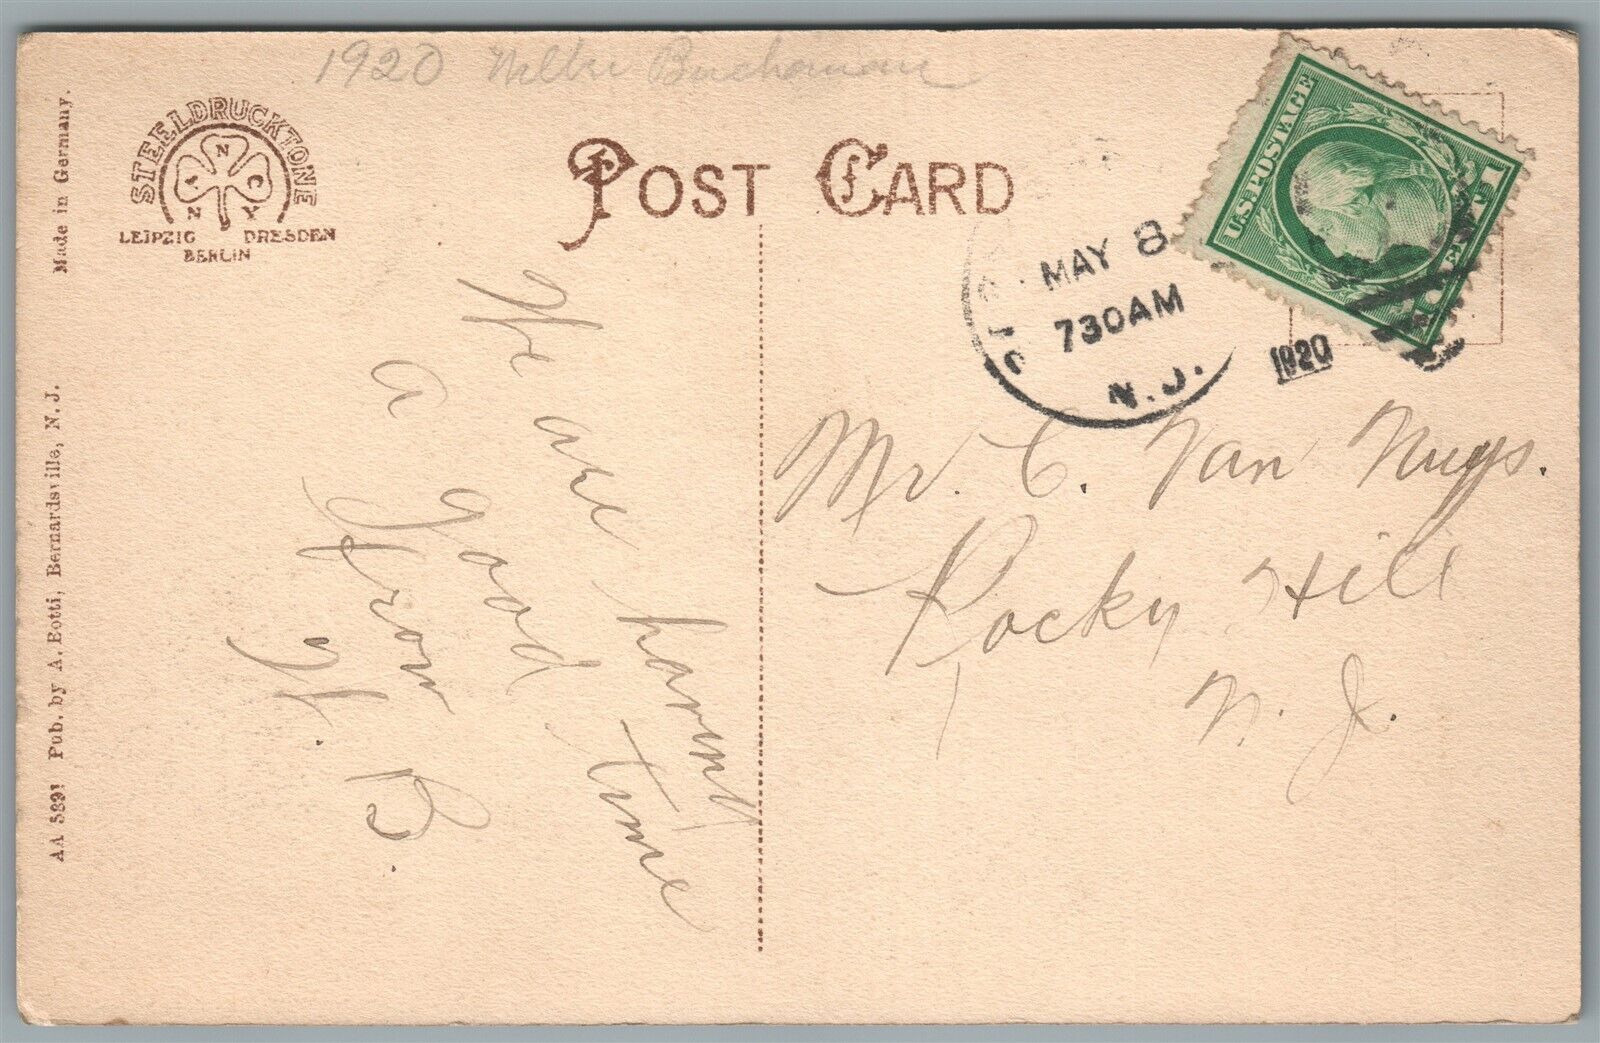 1920
STEELDRUCKTONE
A N C
N Y
LEIPZIG DRESDEN
BERLIN
POST CARD
U.S. POSTAGE
MAY 8
730AM
N.J.
1920
We are having
a good time
from
W. B.
Mr. C. Van Nuys.
Rocky Hill
N. J.
Made in Germany.
AA 5891 Pub. by A. Botti, Bernardsville, N. J.